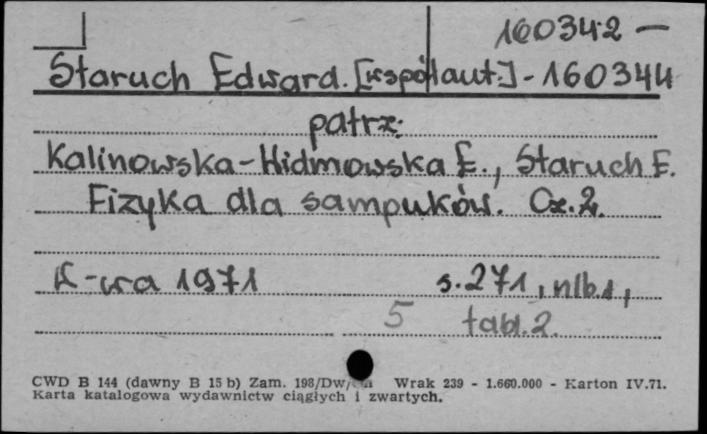 160342 -
Staruch Edward. [współaut.] - 160344
patrz:
Kalinowska-Widmowska E., Staruch E.
Fizyka dla samouków. Cz. 2.
W-wa 1971 s. 271, nlb. 1,
5 tabl. 2.
CWD B 144 (dawny B 15 b) Zam. 198/Dw/ Wrak 239 - 1.660.000 - Karton IV.71.
Karta katalogowa wydawnictw ciągłych i zwartych.